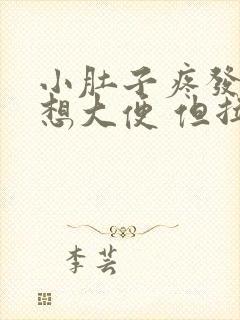 小肚子疼發
想大便 但拉
李芸